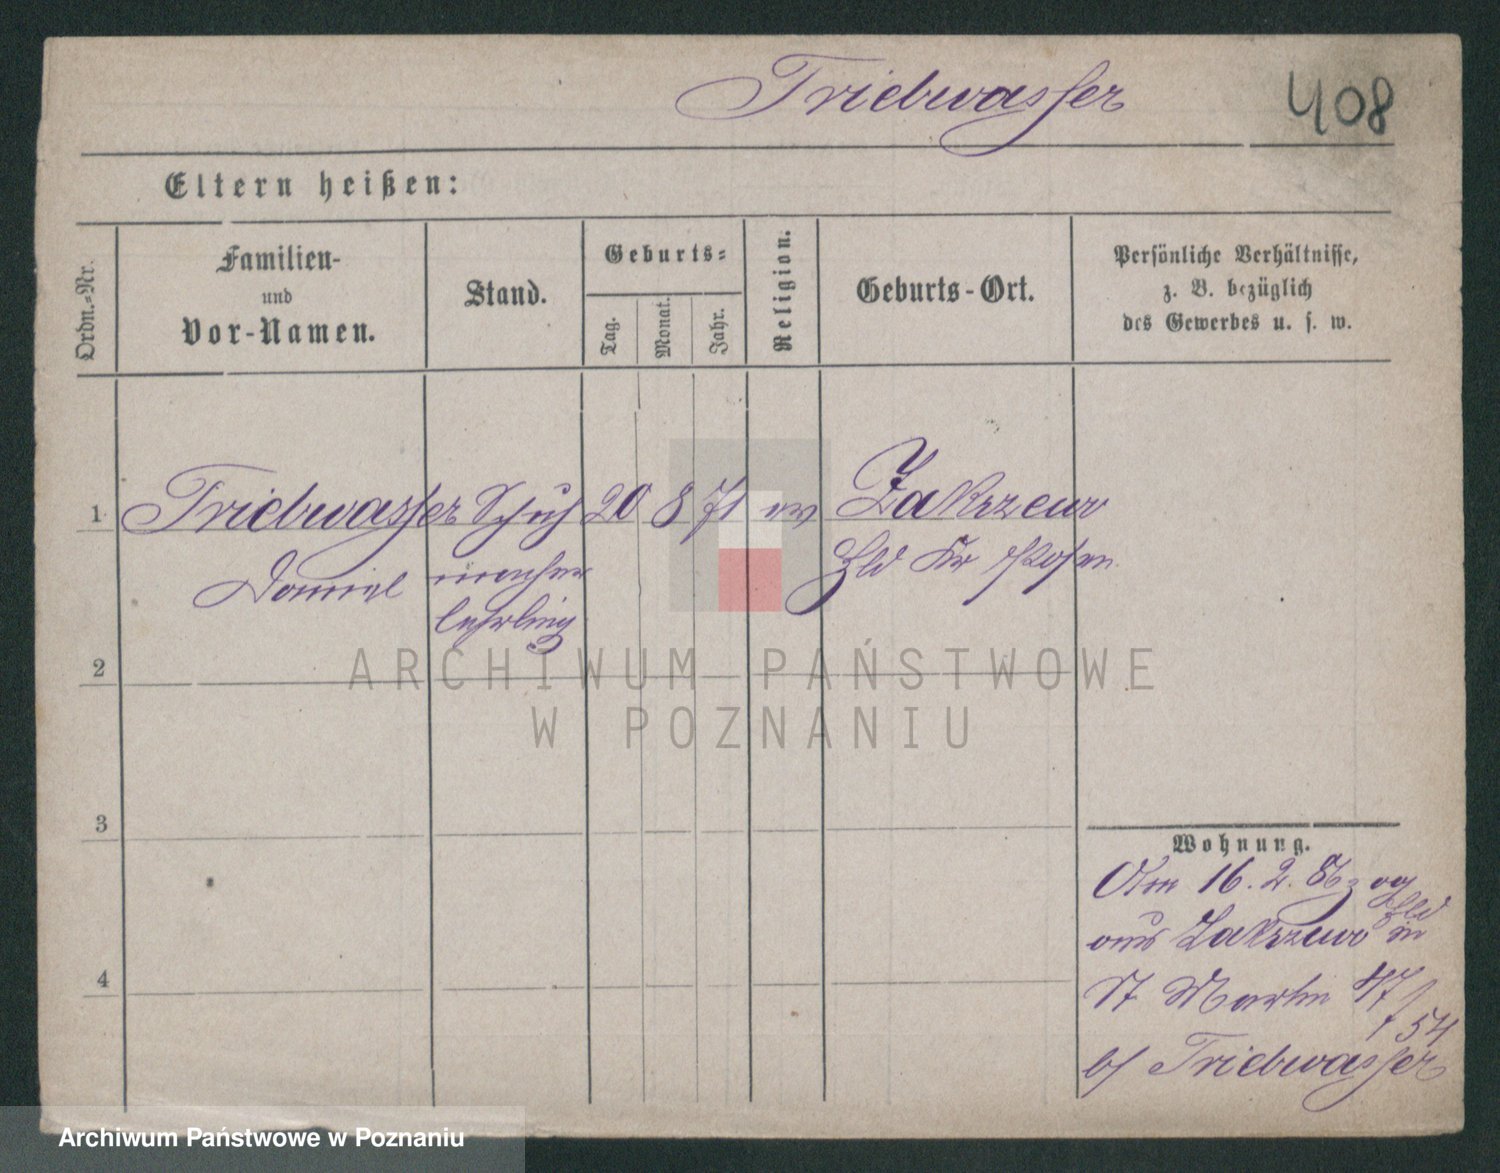 Triebwasser
408
Eltern heißen:
Ordn.-Nr.
Familien-
und
Vor-Namen.
Stand.
Geburts-
Tag.
Monat.
Jahr.
Religion.
Geburts-Ort.
Persönliche Verhältnisse,
z. B. bezüglich
des Gewerbes u. s. w.
1 Triebwasser Schuh 20 8 71 ev Zakrzewo
Daniel macher Hld Kr Posen
lehrling
2
3
4
Wohnung.
Am 16. 2. 86 zog
aus Zakrzewo Hld in
St Martin 47/54
b/ Triebwasser
ARCHIWUM PAŃSTWOWE
W POZNANIU
Archiwum Państwowe w Poznaniu